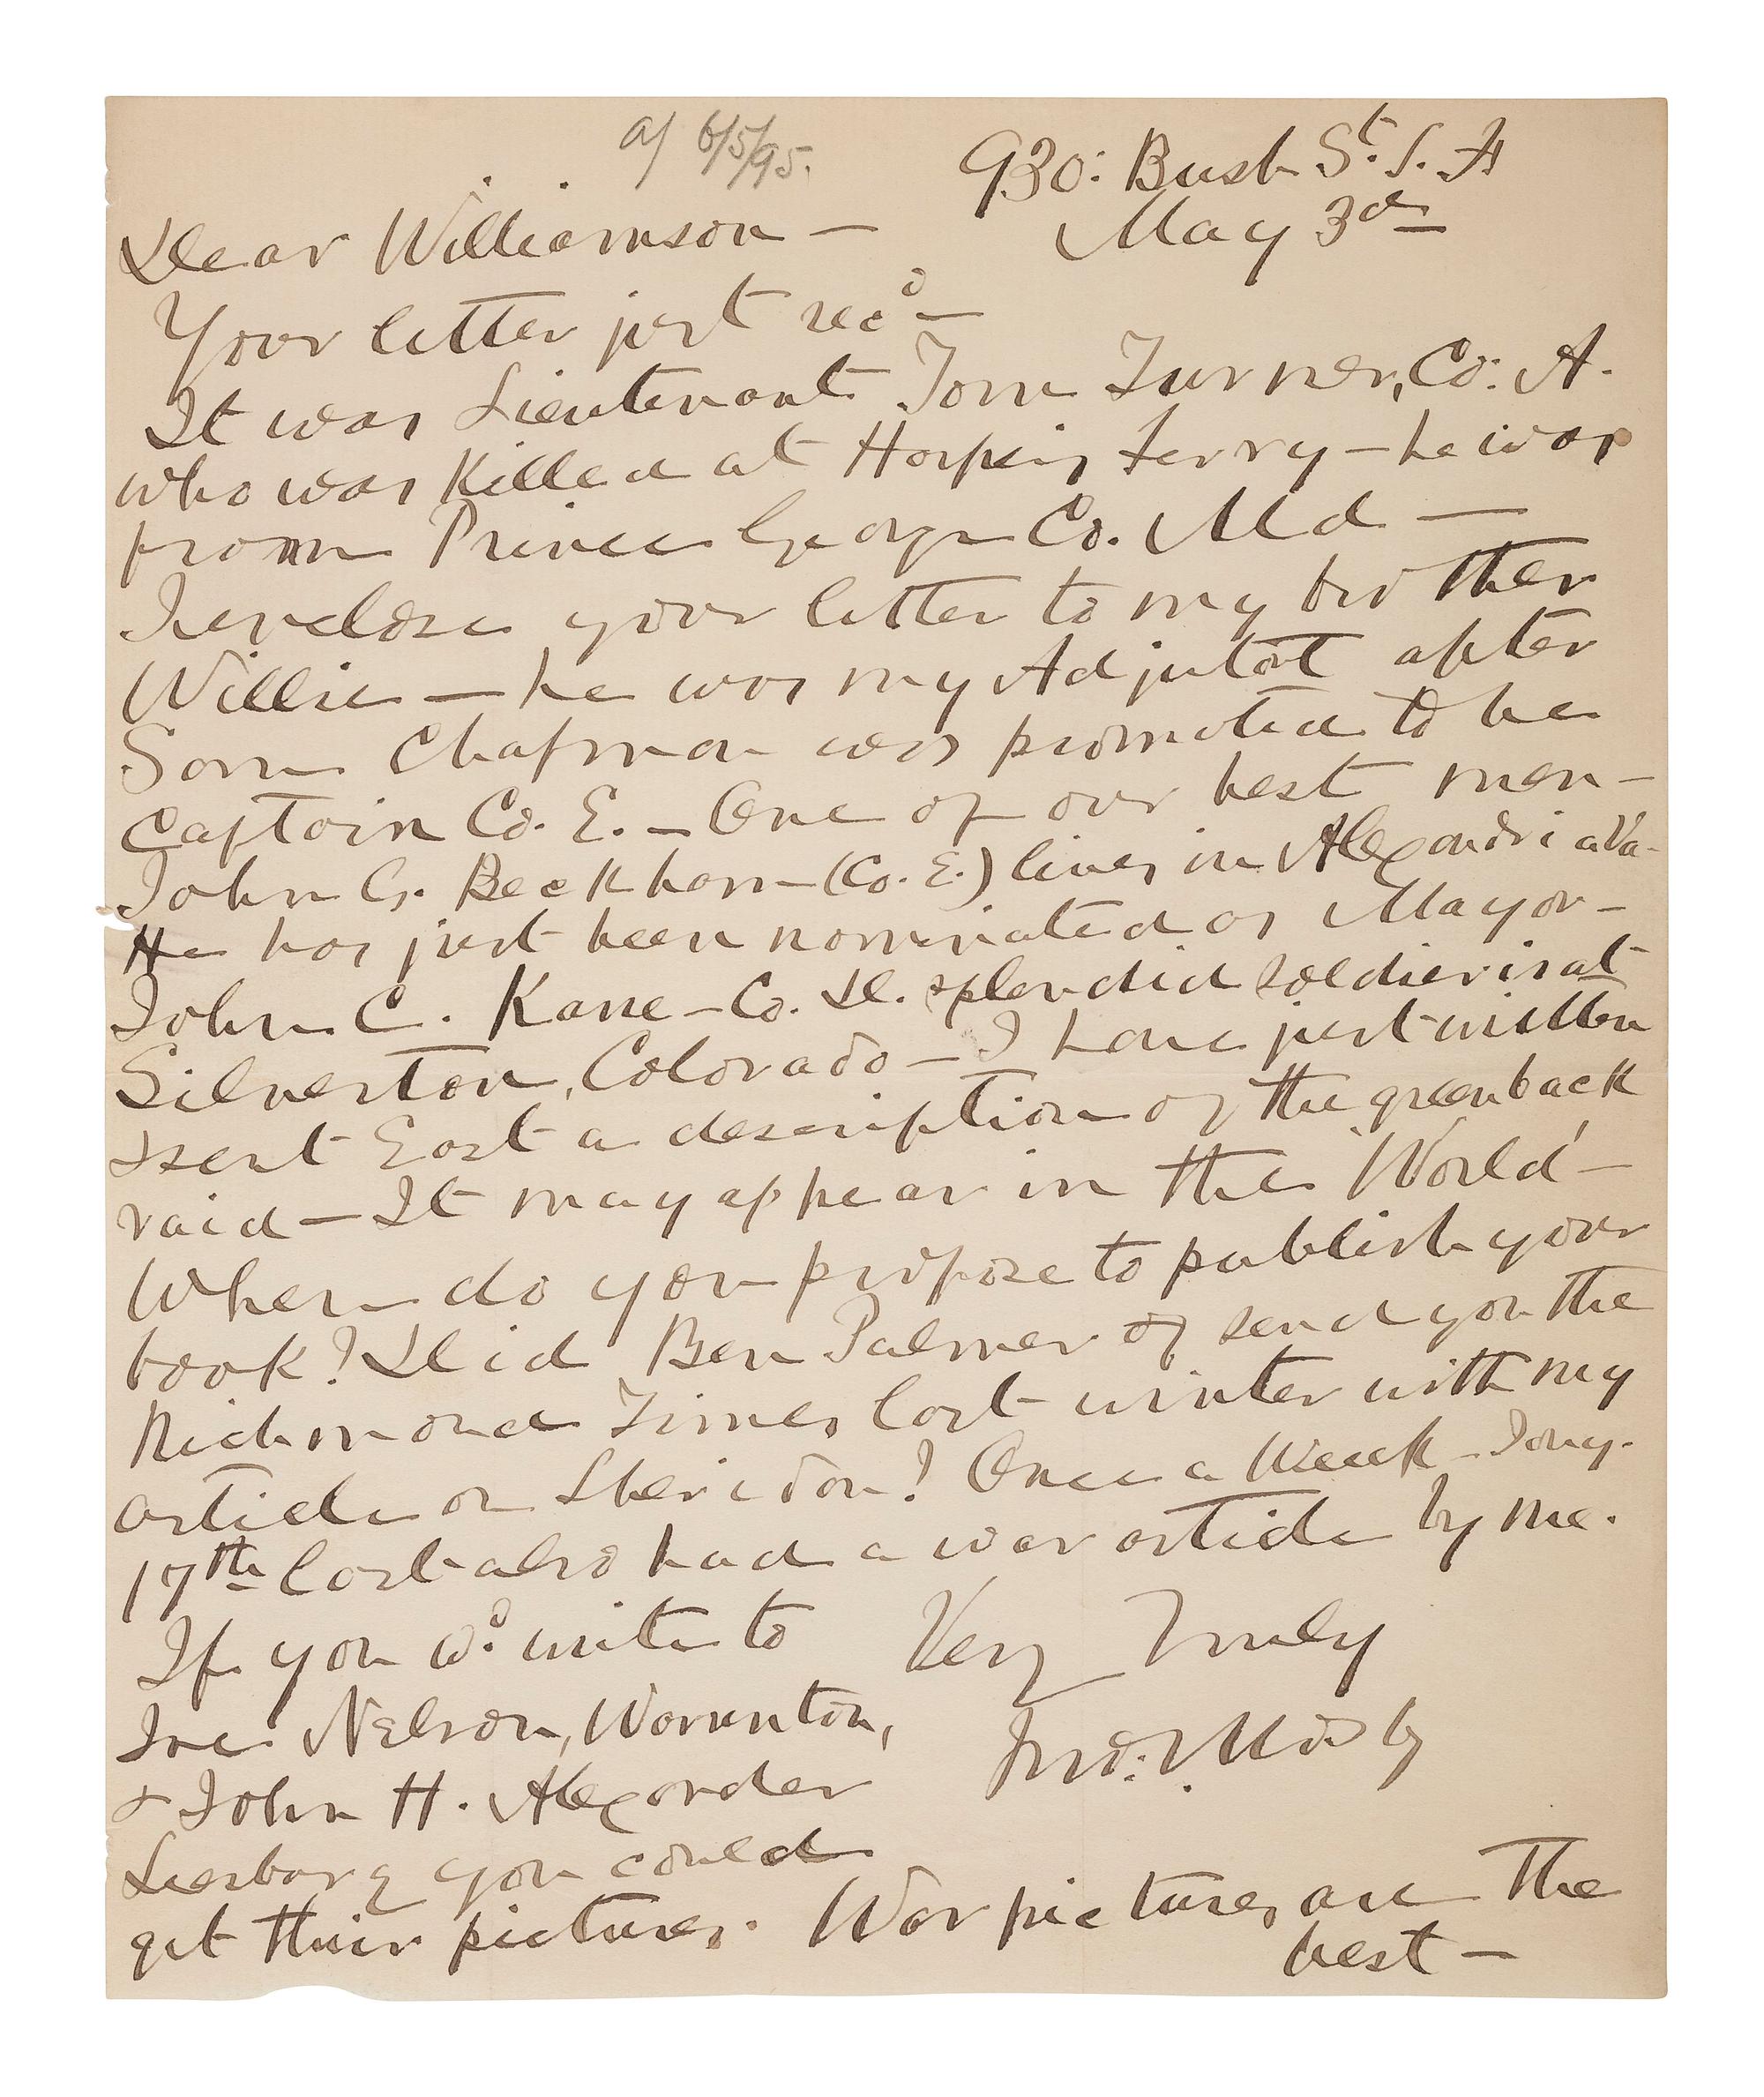 a/ 6/5/95.
930: Bush St. S. F
May 3d
Dear Williamson —
Your letter just recd —
It was Lieutenant Tom Turner, Co: A.
who was killed at Harpers Ferry — he was
from Prince George Co. Md —
I enclose your letter to my brother
Willie — he was my Adjutat after
Sam Chapman was promoted to be
Captain Co. E. — One of our best men —
John G. Beckham (Co. E.) lives in Alexandria Va -
He has just been nominated as Mayor —
John C. Kane — Co. D. splendid soldier is at
Silverton, Colorado — I have just written
& sent East a description of the greenback
raid — It may appear in the 'World' —
When do you propose to publish your
book? Did Ben Palmer send you the
Richmond Times last winter with my
article on Sheridan? Once a Week - Jany.
17th last also had a war article by me.
If you wd: write to
Joe Nelson, Warrenton,
& John H. Alexander
Leesburg you could
get their pictures. War pictures are the
best —
Very Truly
Jno: S. Mosby